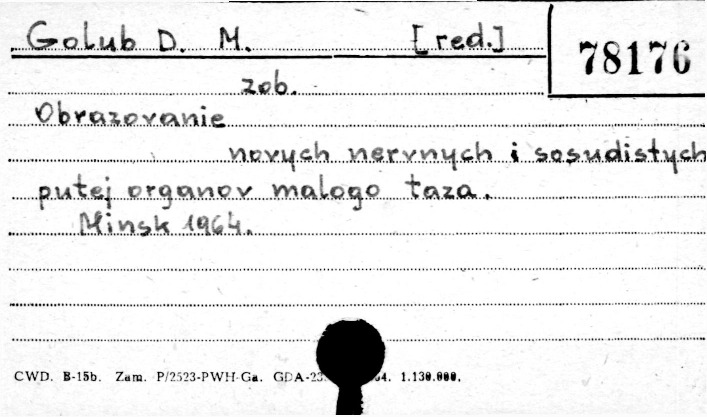 Golub D. M. [red.]
78176
zob.
Obrazovanie
novych nervnych i sosudistych
putej organov malogo taza.
Minsk 1964.
CWD. B-15b. Zam. P/2523-PWH-Ga. GDA-23 4. 1.130.000.